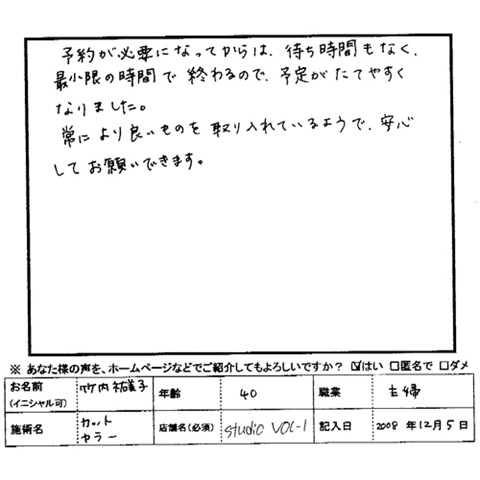 予約が必要になってからは、待ち時間もなく、
最小限の時間で終わるので、予定がたてやすく
なりました。
常により良いものを取り入れているようで、安心
してお願いできます。
※ あなた様の声を、ホームページなどでご紹介してもよろしいですか？ ☑はい □匿名で □ダメ
お名前 (イニシャル可) 竹内 祐美子 年齢 40 職業 主婦
施術名 カット カラー 店舗名(必須) studio VOL-1 記入日 2008 年 12 月 5 日